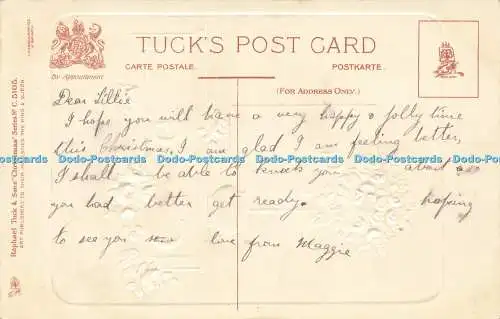 TUCK'S POST CARD
CARTE POSTALE. POSTKARTE.
By Appointment.
(FOR ADDRESS ONLY.)
Raphael Tuck & Sons' "Christmas" Series No. C. 5105.
ART PUBLISHERS TO THEIR MAJESTIES THE KING & QUEEN
Dear Lillie
I hope you will have a very happy & jolly time
this Christmas, I am glad I am feeling better,
I shall be able to knock you about so
you had better get ready. hoping
to see you soon love from Maggie
Dodo-Postcards Dodo-Postcards Dodo-Postcards Dodo-Postcards